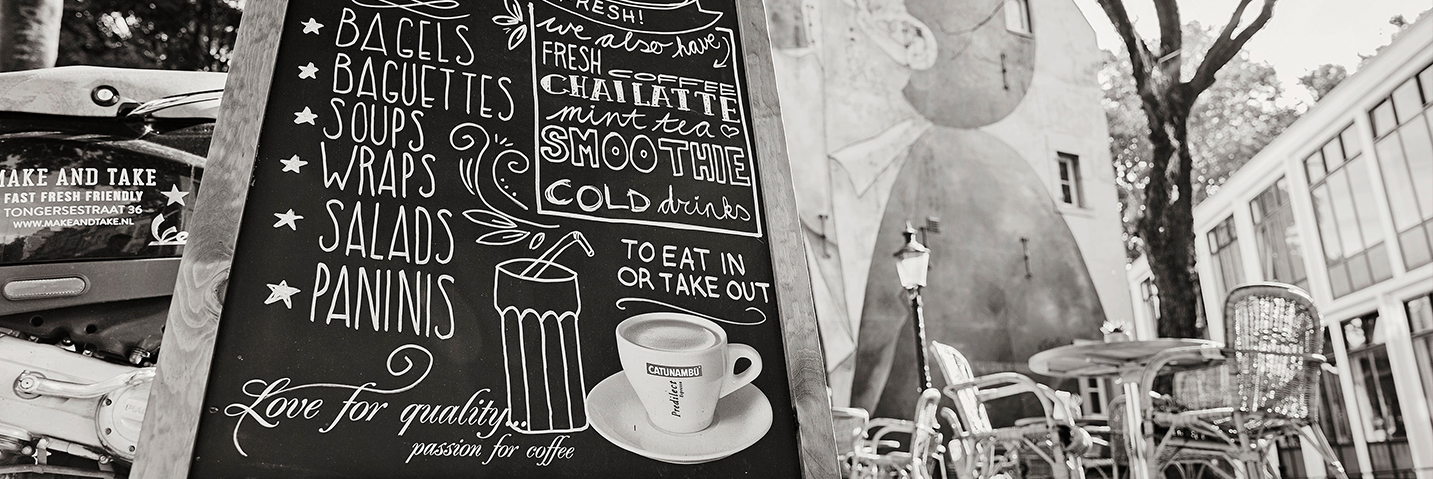 MAKE AND TAKE
FAST FRESH FRIENDLY
TONGERSESTRAAT 36
WWW.MAKEANDTAKE.NL
BAGELS
BAGUETTES
SOUPS
WRAPS
SALADS
PANINIS
FRESH!
we also have
FRESH COFFEE
CHAI LATTE
mint tea
SMOOTHIE
COLD drinks
TO EAT IN
OR TAKE OUT
CATUNAMBÚ
Predilect
Love for quality...
passion for coffee